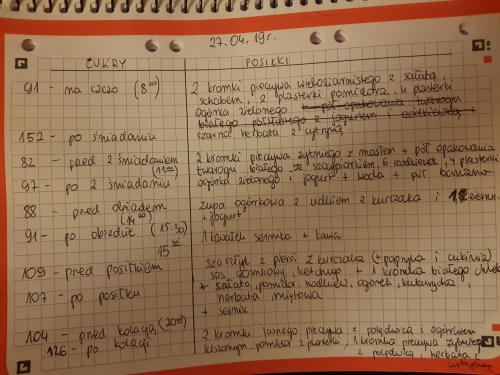 27.04.19r.
CUKRY
POSIŁKI
91 - na czczo (8⁰⁰)
2 kromki pieczywa wieloziarnistego z sałatą,
schabem, 2 plasterki pomidora, 4 plasterki
ogórka zielonego + pół opakowania twarogu
białego półtłustego z jogurtem i rzodkiewką +
czarna herbata z cytryną
152 - po śniadaniu
82 - przed 2 śniadaniem
(11⁰⁰)
97 - po 2 śniadaniu
2 kromki pieczywa żytniego z masłem + pół opakowania
twarogu białego ze szczypiorkiem, 6 rodkiewek, 4 plasterki
ogórka zielonego i jogurt + woda + pół banana
88 - przed obiadem
(14⁰⁰)
zupa ogórkowa z udkiem z kurczaka i
+ jogurt
91 - po obiedzie (15:30)
1 kawałek sernika + kawa
109 - przed posiłkiem
107 - po posiłku
szaszłyk z piersi z kurczaka (+ papryka i cukinia)
sos czosnkowy, ketchup + 1 kromka białego chleba
+ sałata, pomidor, ogórek, kukurydza,
herbata miętowa
+ sernik
104 - przed kolacją (20⁰⁰)
126 - po kolacji
2 kromki jasnego pieczywa z polędwicą i ogórkiem
kiszonym, pomidor 2 plasterki, 1 kromka pieczywa żytniego
z polędwicą, herbata z
cytryną